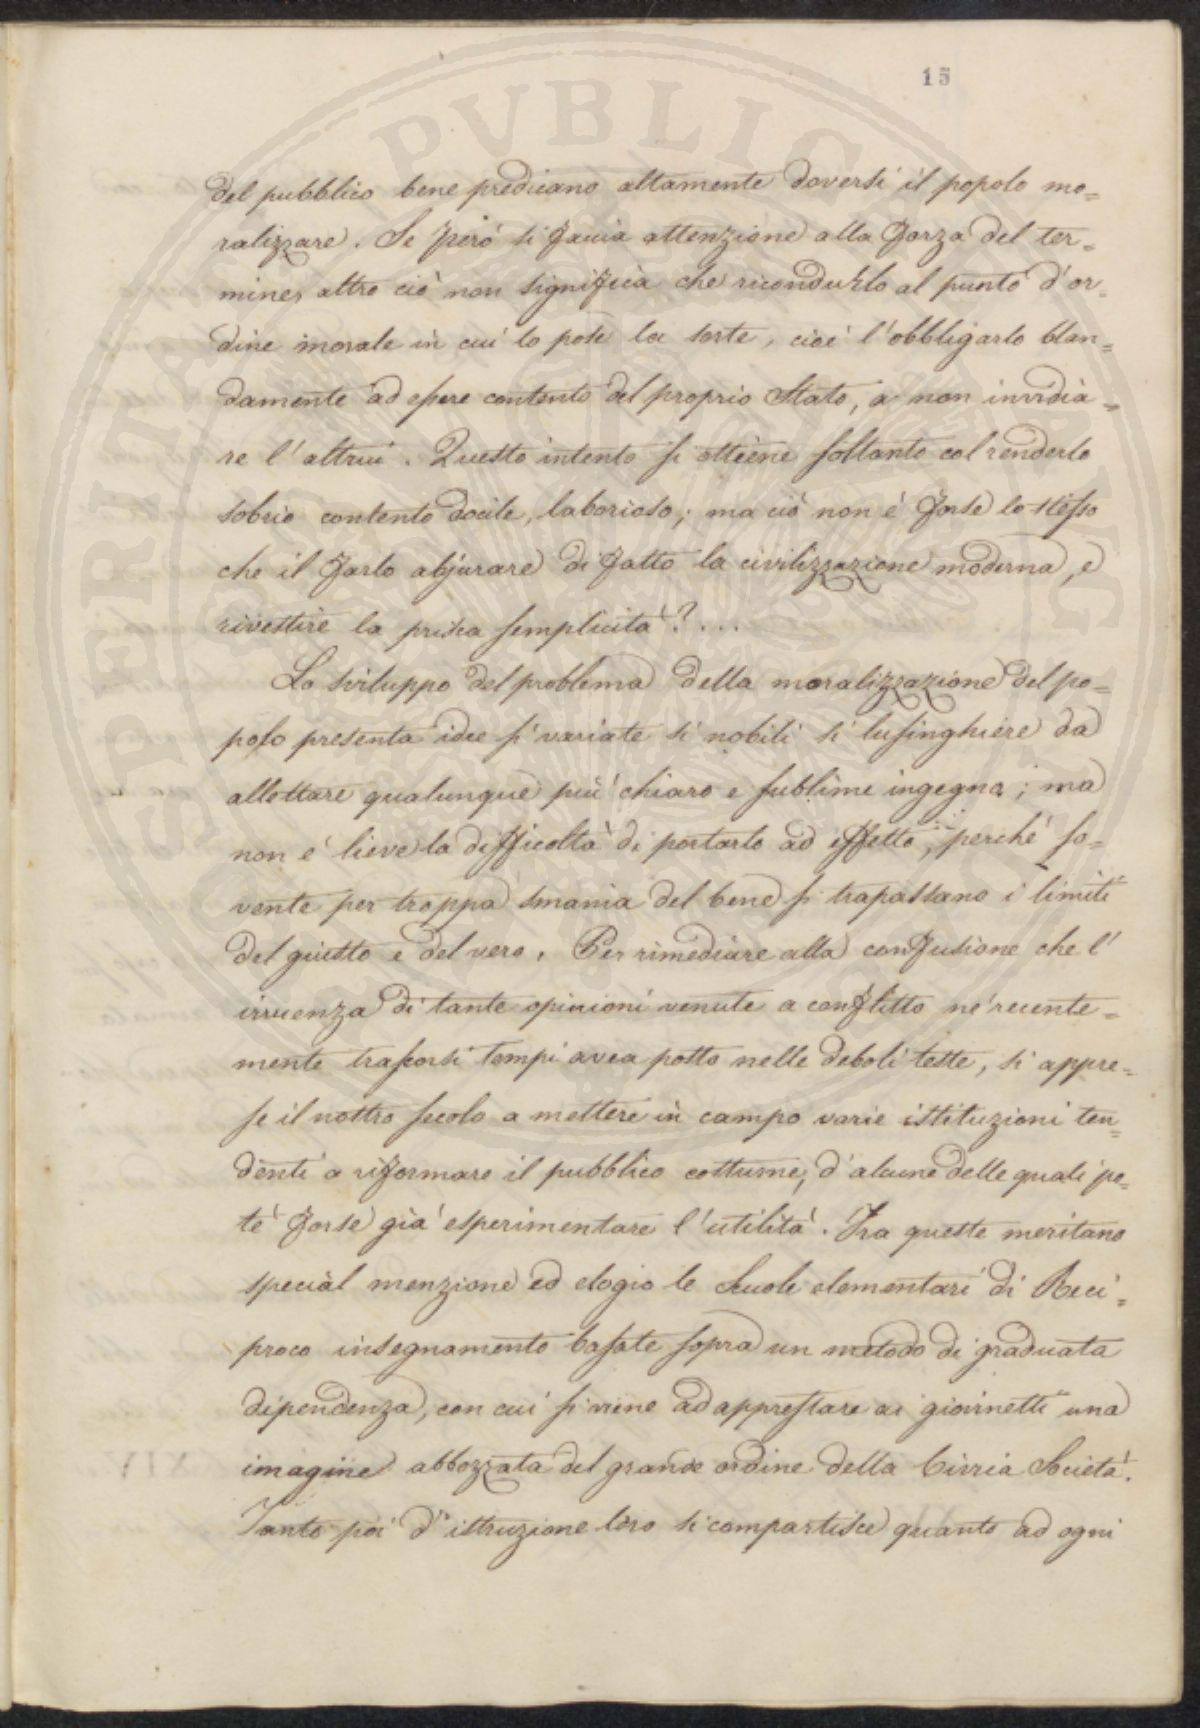 15
del pubblico bene predicano altamente doversi il popolo mo=
ralizzare. Se però si faccia attenzione alla forza del ter=
mine, altro ciò non significa che ricondurlo al punto d'or=
dine morale in cui lo pose la sorte, cioè l'obbligarlo blan=
damente ad essere contento del proprio Stato, a non invidia=
re l'altrui. Questo intento si ottiene soltanto col renderlo
sobrio contento docile, laborioso; ma ciò non è forse lo stesso
che il farlo abjurare di fatto la civilizzazione moderna, e
rivestire la prisca semplicità?...
Lo sviluppo del problema della moralizzazione del po=
polo presenta idee sì variate sì nobili sì lusinghiere da
allettare qualunque più chiaro e sublime ingegno; ma
non è lieve la difficoltà di portarlo ad effetto, perché so=
vente per troppa smania del bene si trapassano i limiti
del giusto e del vero. Per rimediare alla confusione che l'
irruenza di tante opinioni venute a conflitto ne' recente=
mente trascorsi tempi avea posto nelle deboli teste, si appre=
se il nostro secolo a mettere in campo varie istituzioni ten=
denti a riformare il pubblico costume, d'alcune delle quali po=
tè forse già esperimentare l'utilità. Fra queste meritano
special menzione ed elogio le Scuole elementari di Reci=
proco insegnamento basate sopra un metodo di graduata
dipendenza, con cui si viene ad apprestare ai giovinetti una
imagine abbozzata del grande ordine della Civica Società.
Tanto poi d'istruzione loro si compartisce quanto ad ogni
PVBLIC